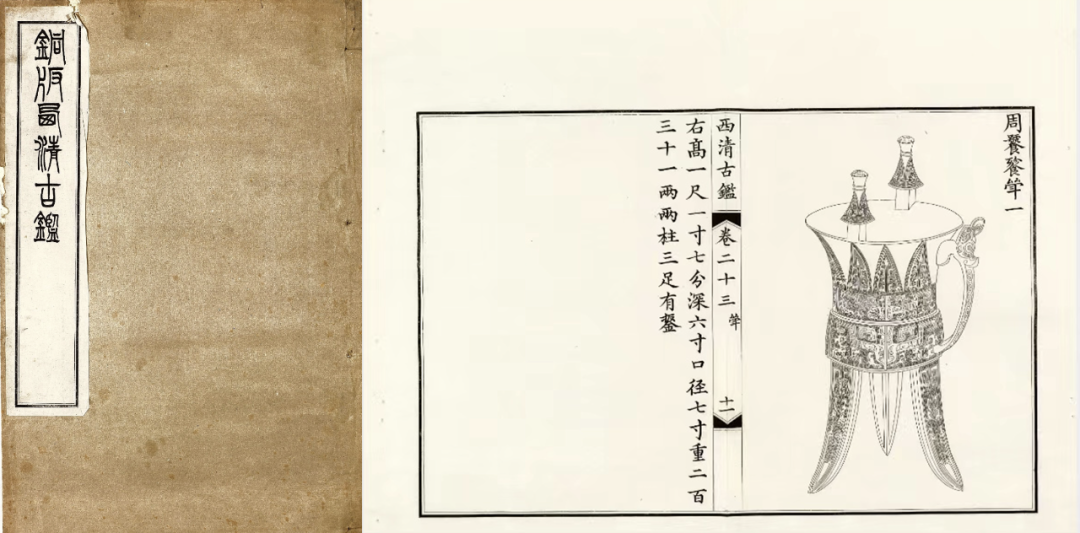 銅版西清古鑑
周饕餮斝一
西清古鑑 卷二十三 斝 十一
右髙一尺一寸七分深六寸口徑七寸重二百
三十一兩兩柱三足有鋬